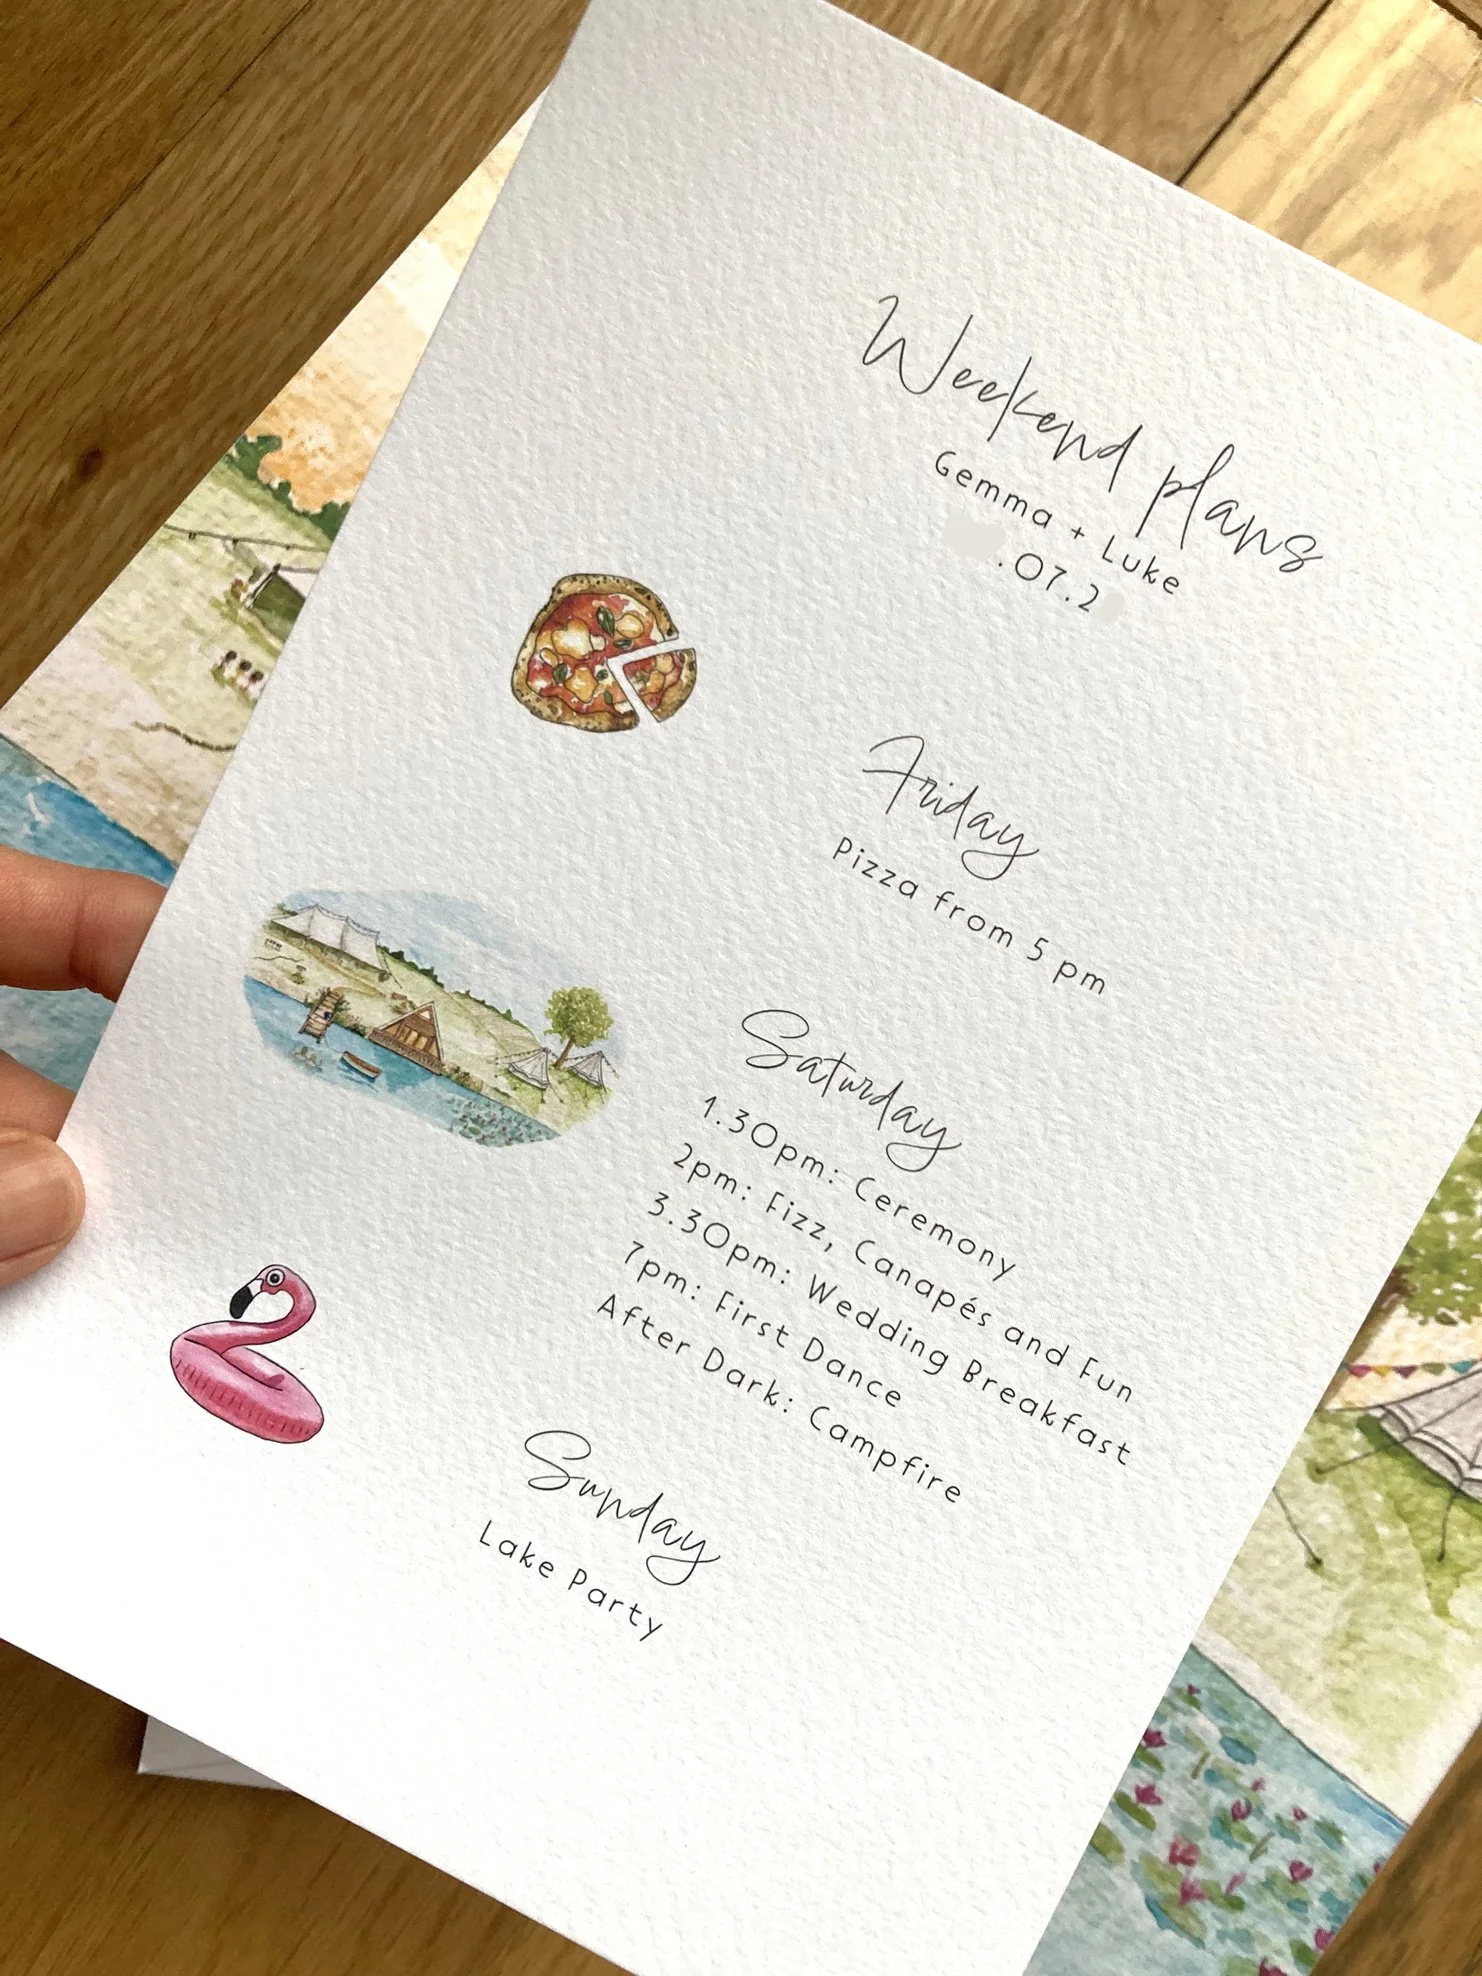 Weekend plans
Gemma + Luke
.07.2
Friday
Pizza from 5 pm
Saturday
1.30pm: Ceremony
2pm: Fizz, Canapés and Fun
3.30pm: Wedding Breakfast
7pm: First Dance
After Dark: Campfire
Sunday
Lake Party